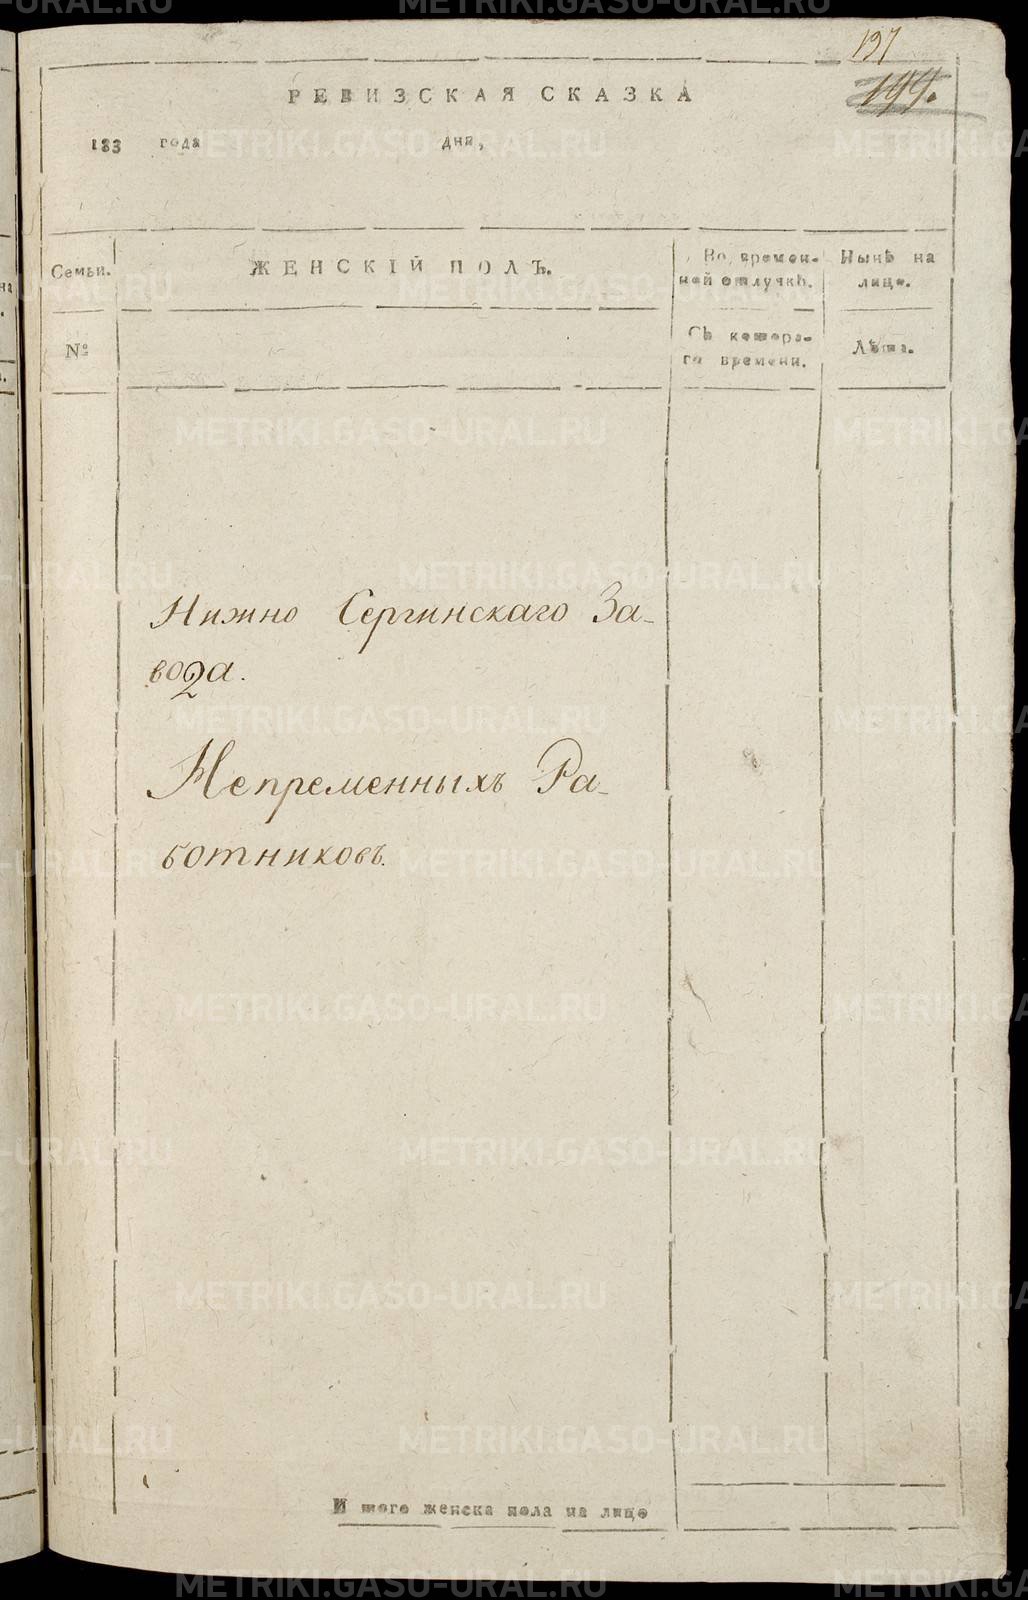 197
199.
РЕВИЗСКАЯ СКАЗКА
183 года дня,
Семьи.
ЖЕНСКІЙ ПОЛЪ.
Во времен-
ной отлучкѣ.
Нынѣ на
лице.
№
Съ котора-
го времени.
Лѣта.
Нижно Сергинскаго За-
вода.
Непременныхъ Ра-
ботниковъ.
И того женска пола на лице
METRIKI.GASO-URAL.RU